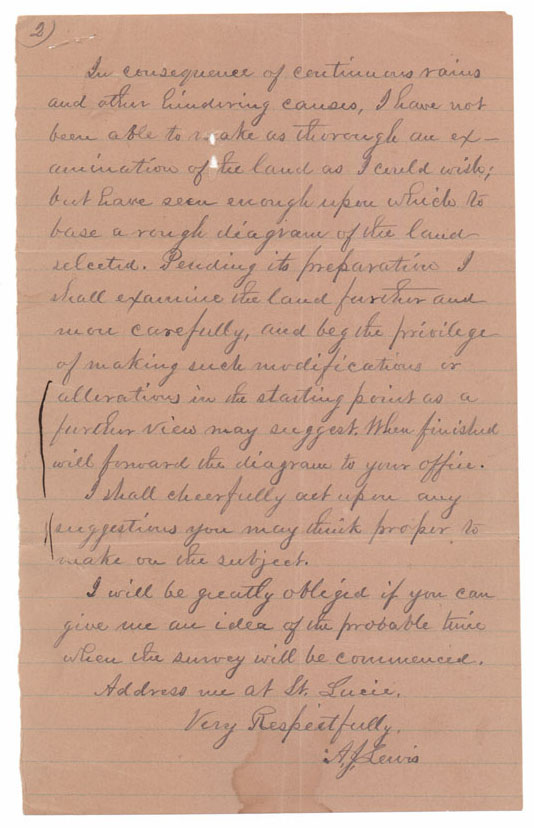 2)
In consequence of continuous rains
and other hindering causes, I have not
been able to make as thorough an ex-
amination of the land as I could wish;
but have seen enough upon which to
base a rough diagram of the land
selected. Pending its preparation I
shall examine the land further and
more carefully, and beg the privilege
of making such modifications or
alterations in the starting point as a
further view may suggest. When finished
will forward the diagram to your office.
I shall cheerfully act upon any
suggestions you may think proper to
make on the subject.
I will be greatly obliged if you can
give me an idea of the probable time
when the survey will be commenced.
Address me at St. Lucie.
Very Respectfully,
A.J. Lewis